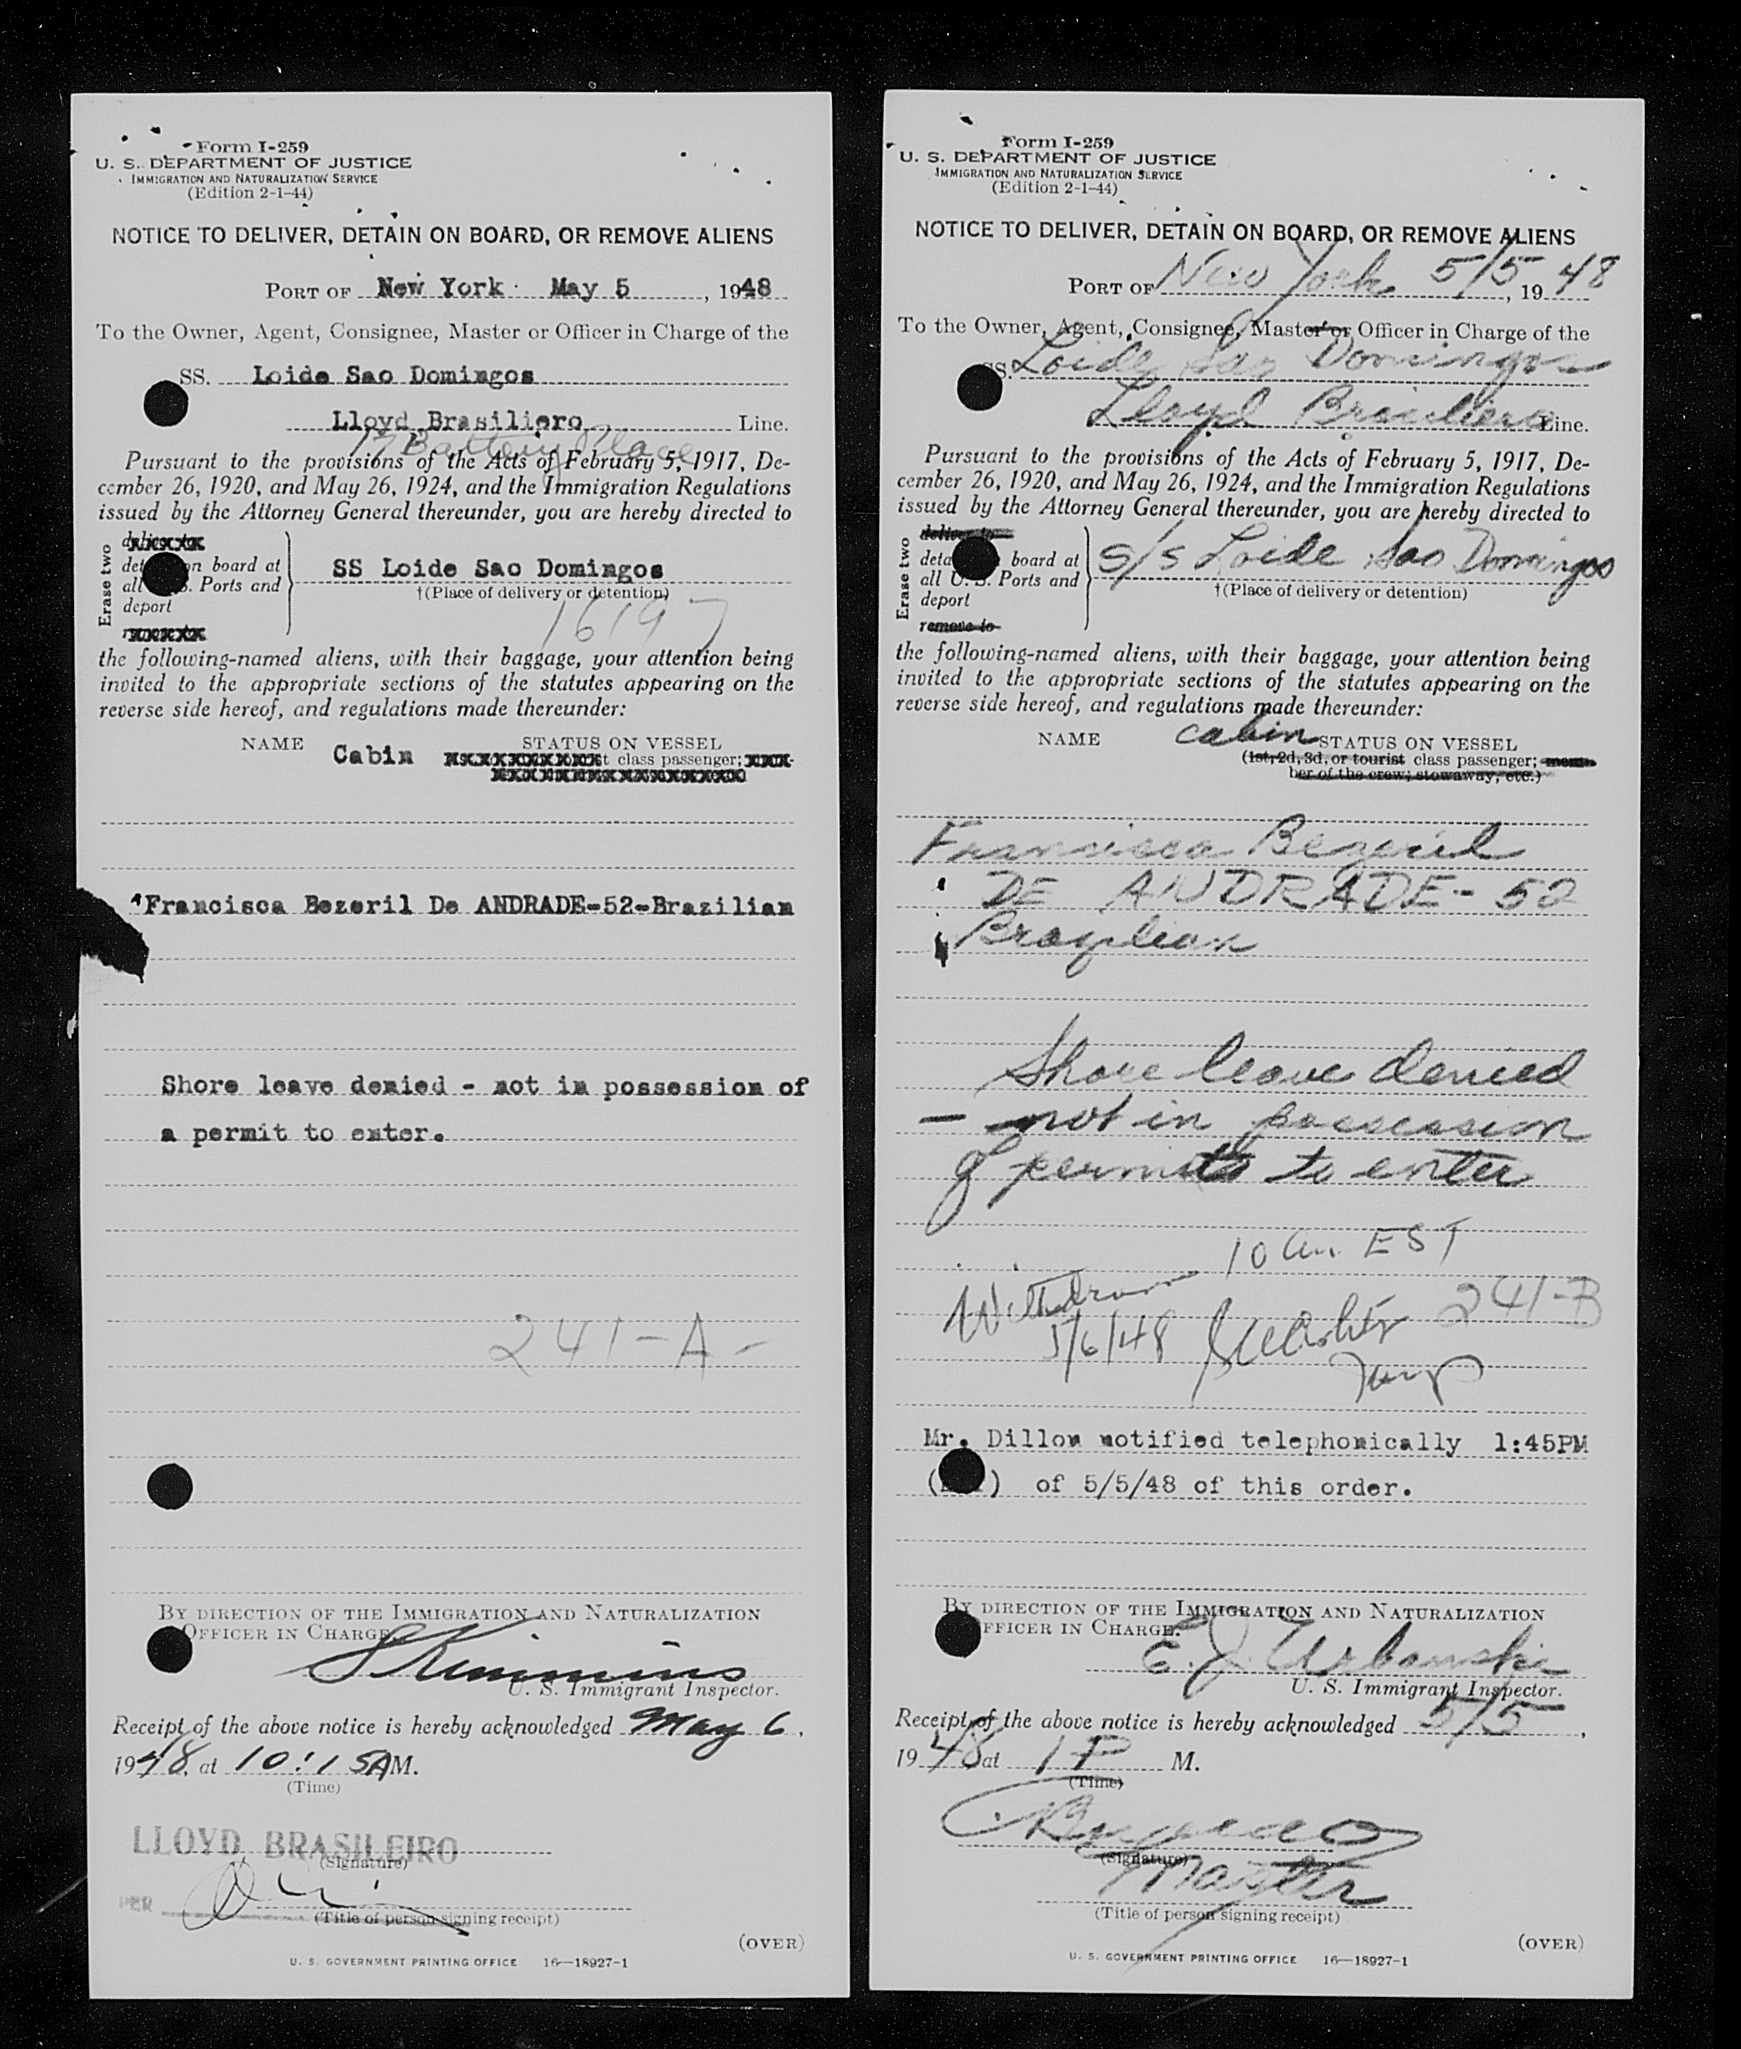 Form I-259
U. S. DEPARTMENT OF JUSTICE
IMMIGRATION AND NATURALIZATION SERVICE
(Edition 2-1-44)
NOTICE TO DELIVER, DETAIN ON BOARD, OR REMOVE ALIENS
PORT OF New York May 5, 1948
To the Owner, Agent, Consignee, Master or Officer in Charge of the
SS. Loide Sao Domingos
Lloyd Brasiliero Line.
17 Battery Place
Pursuant to the provisions of the Acts of February 5, 1917, De-
cember 26, 1920, and May 26, 1924, and the Immigration Regulations
issued by the Attorney General thereunder, you are hereby directed to
Erase two
on board at
all Ports and
deport
SS Loide Sao Domingos
†(Place of delivery or detention)
16197
the following-named aliens, with their baggage, your attention being
invited to the appropriate sections of the statutes appearing on the
reverse side hereof, and regulations made thereunder:
NAME STATUS ON VESSEL
Cabin xxxxxxxxxxxt class passenger; xxx-
xxxxxxxxxxxxxxxxxx
Francisca Bezeril De ANDRADE-52-Brazilian
Shore leave denied - not in possession of
a permit to enter.
241-A-
BY DIRECTION OF THE IMMIGRATION AND NATURALIZATION
OFFICER IN CHARGE.
U. S. Immigrant Inspector.
Receipt of the above notice is hereby acknowledged May 6,
1948, at 10:15 AM.
(Time)
LLOYD BRASILEIRO
(Signature)
PER
(Title of person signing receipt)
(OVER)
U. S. GOVERNMENT PRINTING OFFICE 16—18927-1
Form I-259
U. S. DEPARTMENT OF JUSTICE
IMMIGRATION AND NATURALIZATION SERVICE
(Edition 2-1-44)
NOTICE TO DELIVER, DETAIN ON BOARD, OR REMOVE ALIENS
PORT OF New York 5/5, 1948
To the Owner, Agent, Consignee, Master or Officer in Charge of the
SS. Loide Sao Domingos
Lloyd Brasiliero Line.
Pursuant to the provisions of the Acts of February 5, 1917, De-
cember 26, 1920, and May 26, 1924, and the Immigration Regulations
issued by the Attorney General thereunder, you are hereby directed to
Erase two
deliver to
board at
all U. S. Ports and
deport
remove to
S/S Loide Sao Domingos
†(Place of delivery or detention)
the following-named aliens, with their baggage, your attention being
invited to the appropriate sections of the statutes appearing on the
reverse side hereof, and regulations made thereunder:
NAME cabin STATUS ON VESSEL
(1st, 2d, 3d, or tourist class passenger; mem-
ber of the crew; stowaway, etc.)
Francisca Bezeril
DE ANDRADE - 52
Brazilian
Shore leave denied
- not in possession
of permits to enter
10 am. EST
Withdrawn 241-B
5/6/48
Mr. Dillon notified telephonically 1:45PM
of 5/5/48 of this order.
BY DIRECTION OF THE IMMIGRATION AND NATURALIZATION
OFFICER IN CHARGE.
E. J. Urbanski
U. S. Immigrant Inspector.
Receipt of the above notice is hereby acknowledged 5/5,
1948 at 1 P M.
(Time)
(Signature)
Master
(Title of person signing receipt)
(OVER)
U. S. GOVERNMENT PRINTING OFFICE 16—18927-1